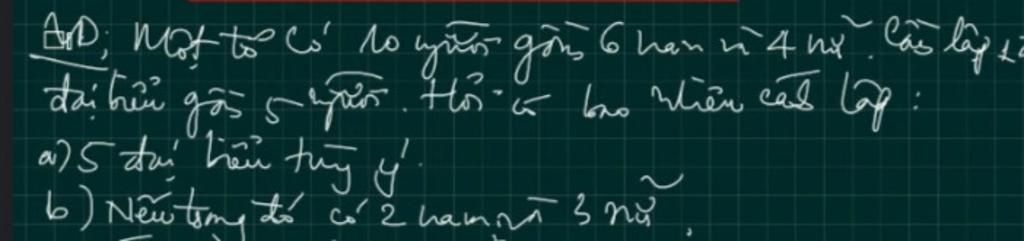 AD: Một tổ có 10 người gồm 6 nam và 4 nữ. Cần lập
đại biểu gồm 5 người. Hỏi có bao nhiêu cách lập:
a) 5 đại biểu tùy ý.
b) Nếu trong đó có 2 nam và 3 nữ.